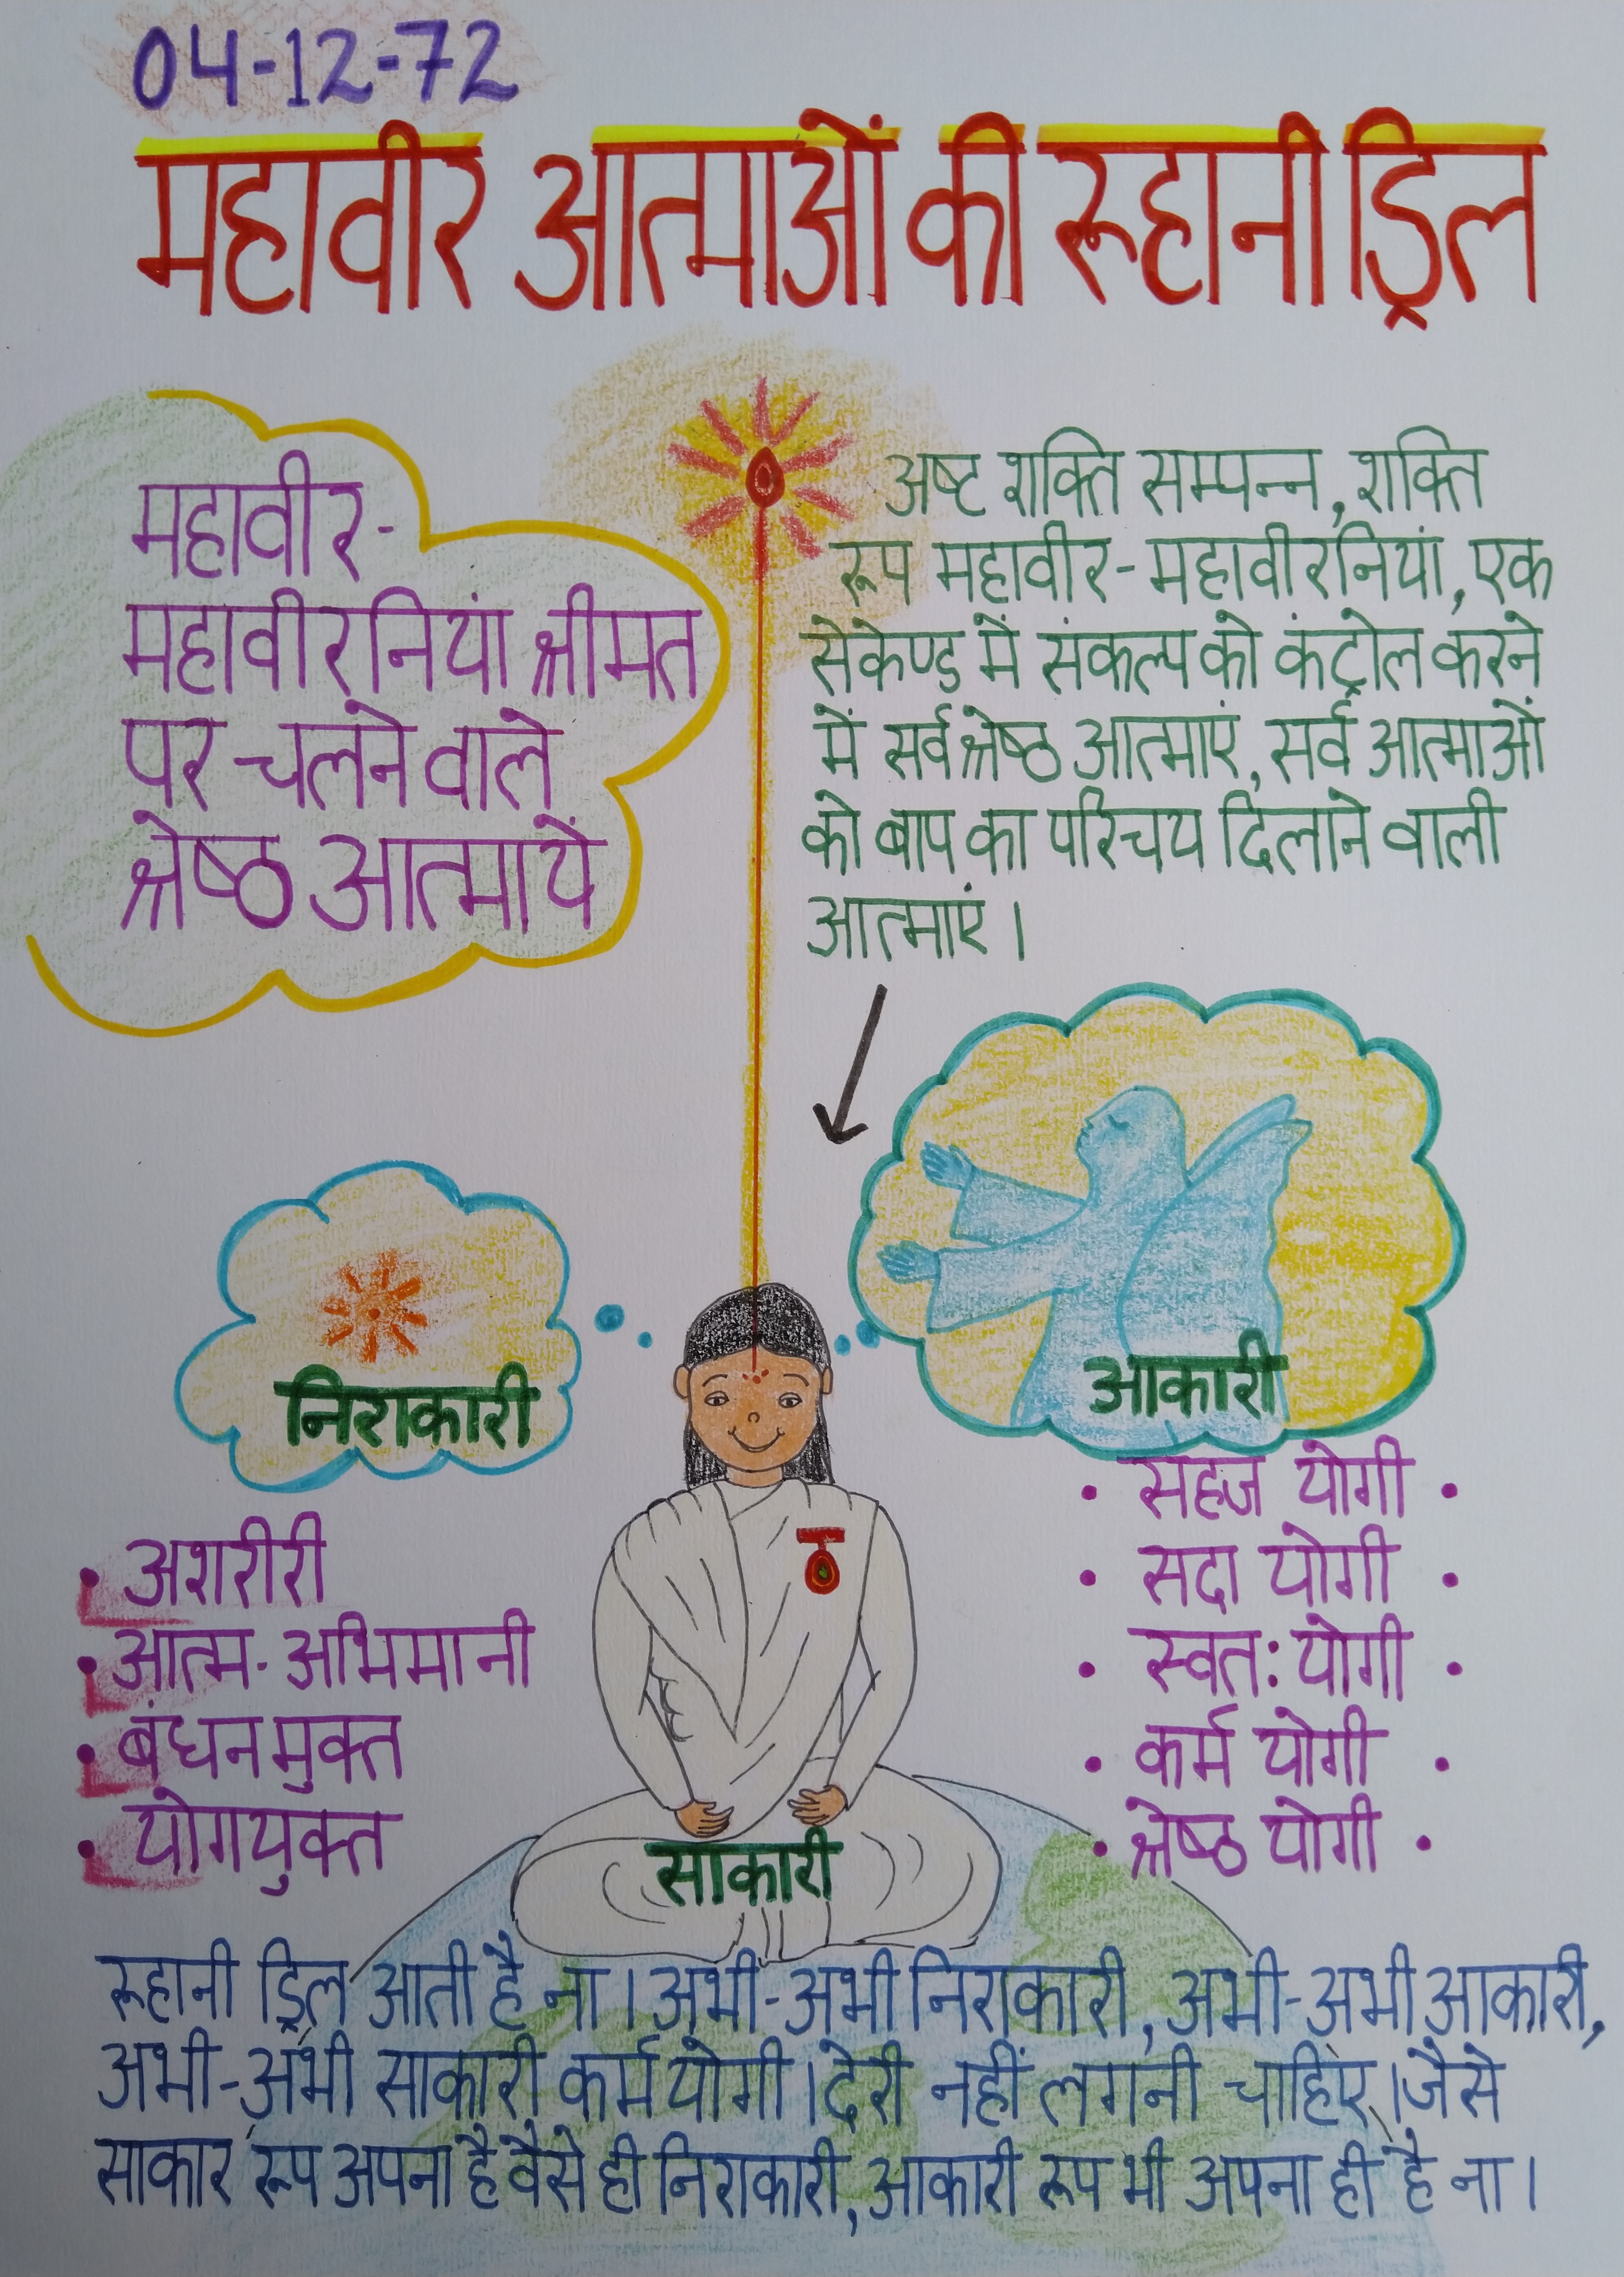 04-12-72
महावीर आत्माओं की रूहानी ड्रिल
महावीर-
महावीरनियां श्रीमत
पर चलने वाले
श्रेष्ठ आत्मायें
अष्ट शक्ति सम्पन्न, शक्ति
रूप महावीर-महावीरनियां, एक
सेकेण्ड में संकल्प को कंट्रोल करने
में सर्वश्रेष्ठ आत्माएं, सर्व आत्माओं
को बाप का परिचय दिलाने वाली
आत्माएं।
निराकारी
आकारी
• अशरीरी
• आत्म-अभिमानी
• बंधनमुक्त
• योगयुक्त
• सहज योगी •
• सदा योगी •
• स्वत: योगी •
• कर्म योगी •
• श्रेष्ठ योगी •
साकारी
रूहानी ड्रिल आती है ना। अभी-अभी निराकारी, अभी-अभी आकारी,
अभी-अभी साकारी कर्मयोगी। देरी नहीं लगनी चाहिए। जैसे
साकार रूप अपना है वैसे ही निराकारी, आकारी रूप भी अपना ही है ना।